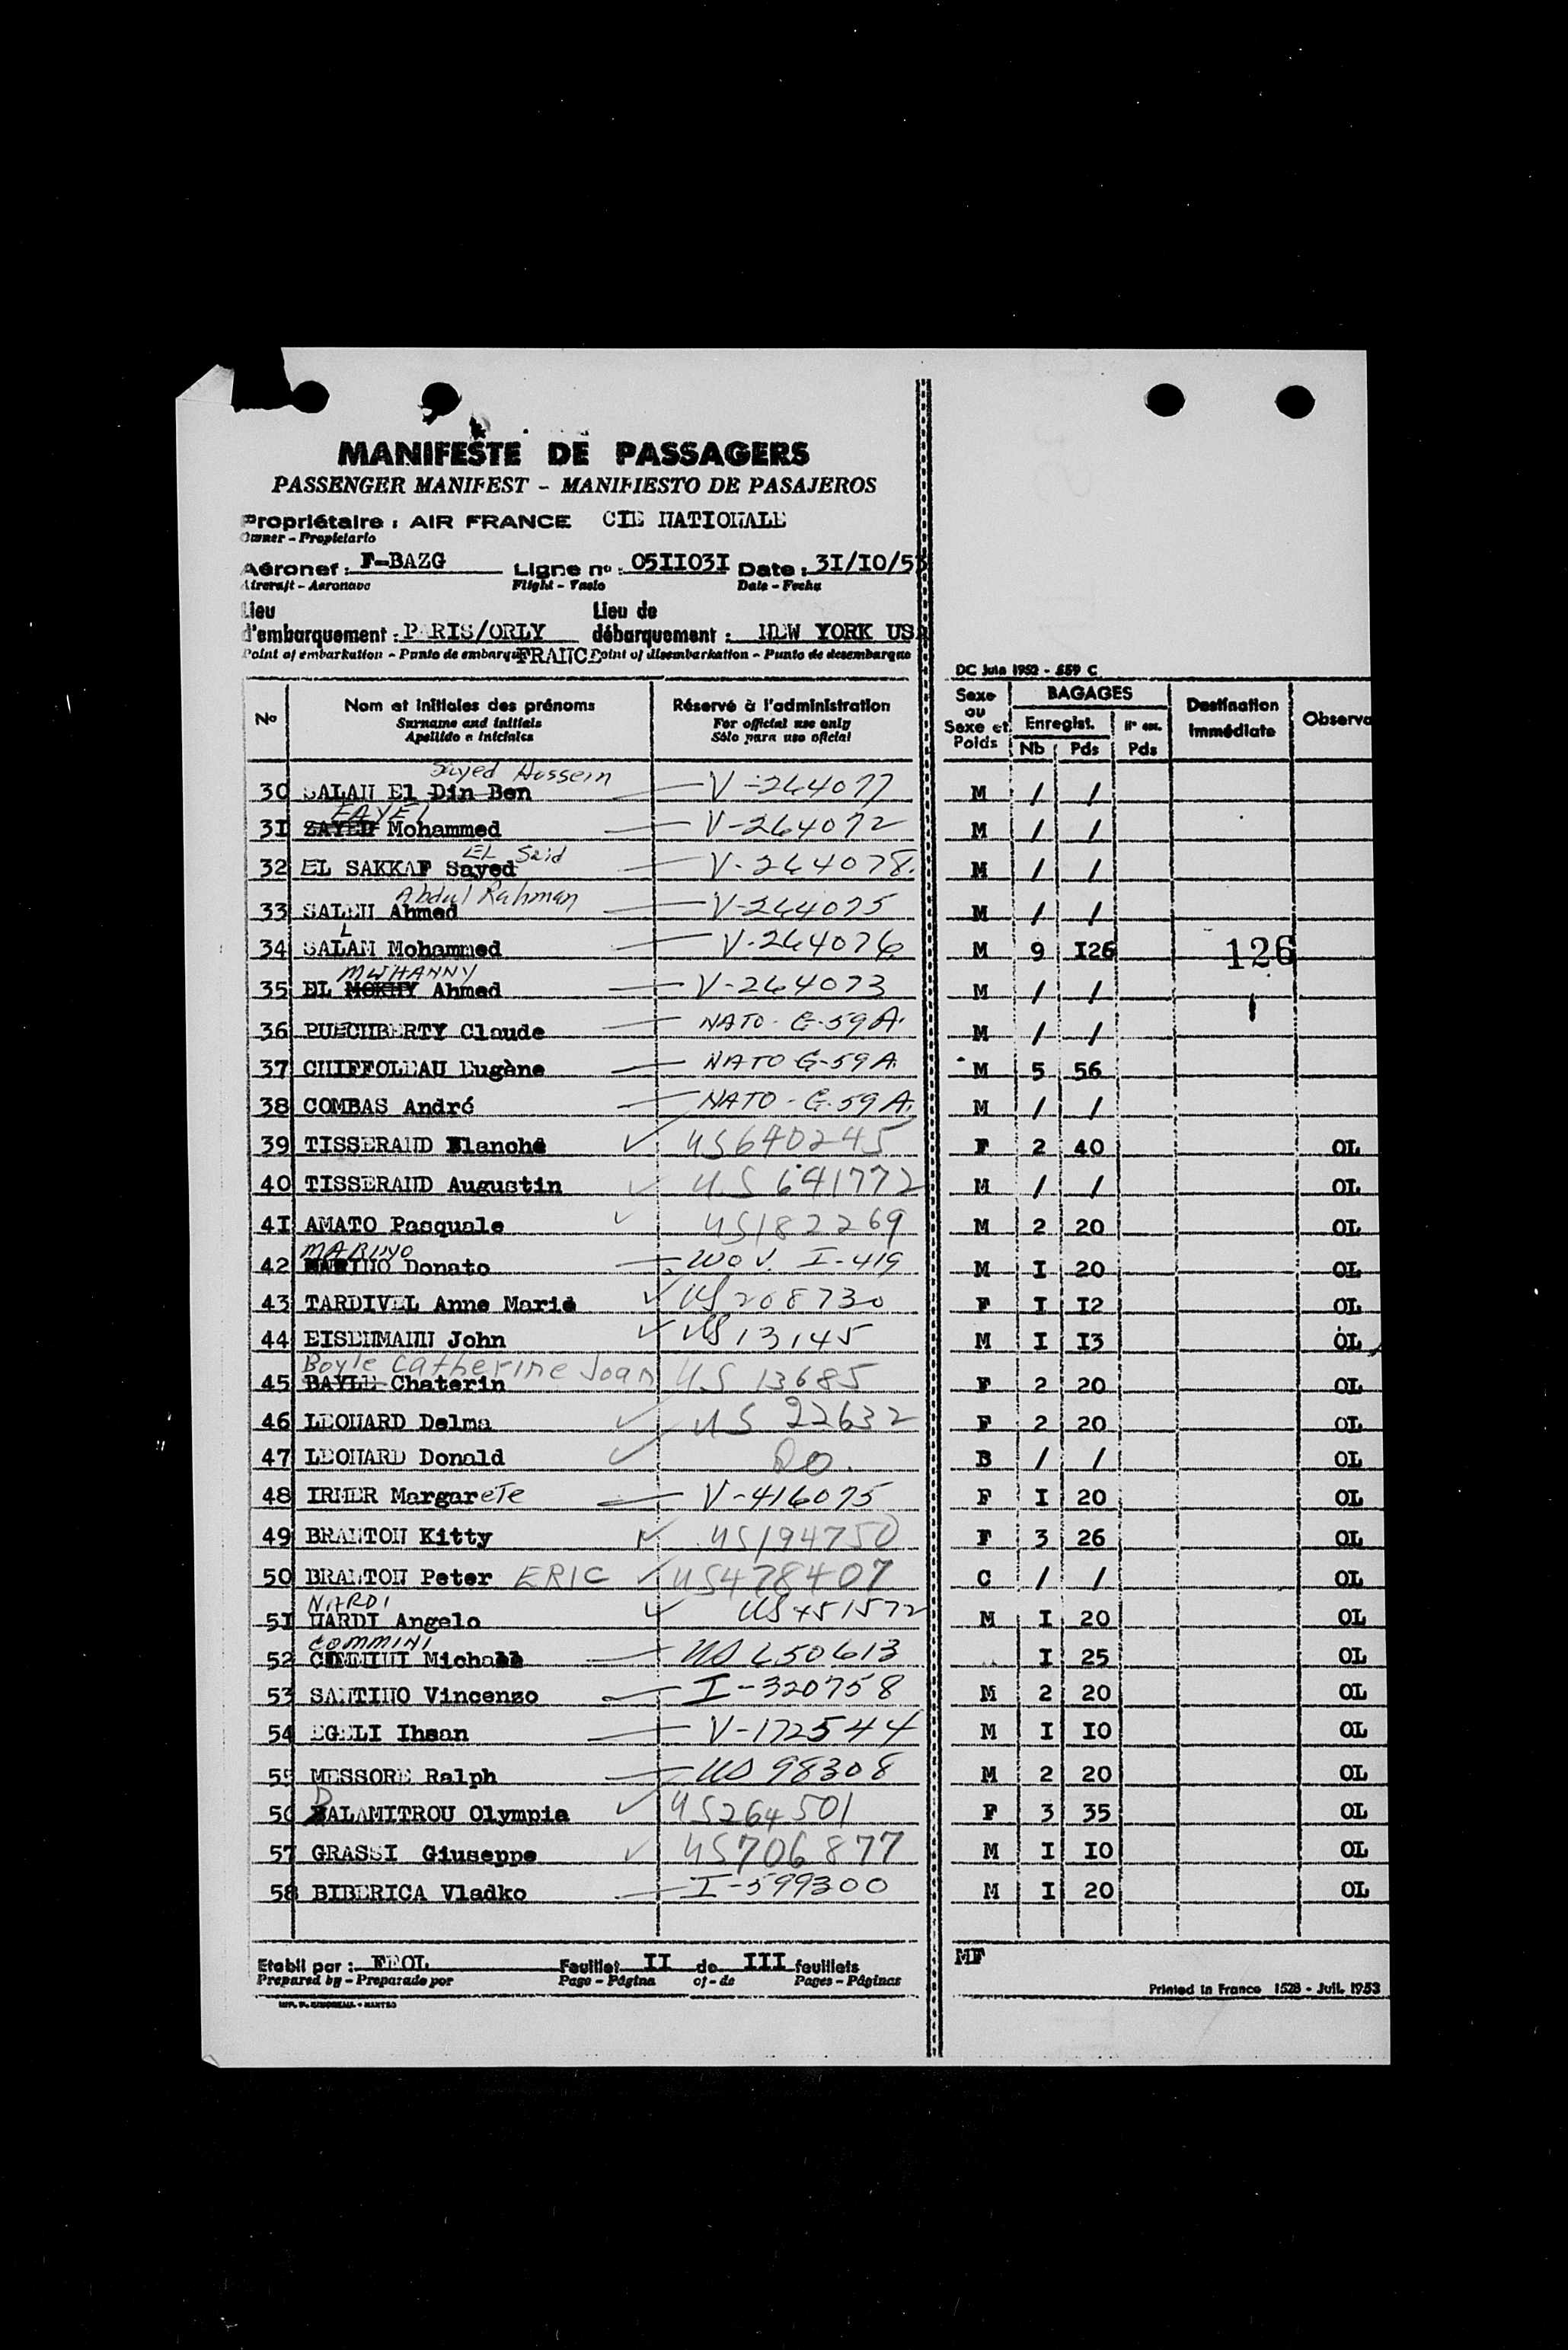 MANIFESTE DE PASSAGERS
PASSENGER MANIFEST - MANIFIESTO DE PASAJEROS
Propriétaire : AIR FRANCE CIE NATIONALE
Owner - Propietario
Aéronef : F-BAZG Ligne n° : 05II03I Date : 3I/I0/53
Aircraft - Aeronave Flight - Vuelo Date - Fecha
Lieu d'embarquement : PARIS/ORLY Lieu de débarquement : NEW YORK USA
Point of embarkation - Punto de embarque FRANCE Point of disembarkation - Punto de desembarque
DC Juin 1952 - 559 C
N° Nom et initiales des prénoms Réservé à l'administration Sexe ou Sexe et Poids BAGAGES Destination immédiate Observa
Surname and initials For official use only Enregist. N° enr.
Apellido e iniciales Sólo para uso oficial Nb Pds Pds
Sayed Hossein
30 SALAH El Din Ben V-264077 M / /
FAYEI
3I ZAYED Mohammed V-264072 M / /
EL Said
32 EL SAKKAF Sayed V-264078. M / /
Abdul Rahman
33 SALEH Ahmed V-264075 M / /
L
34 SALAM Mohammed V-264076 M 9 I26 126
MUHANNY
35 EL MOKHY Ahmed V-264073 M / /
36 PUECHBERTY Claude NATO - G-59A. M / /
37 CHIFFOLEAU Eugène NATO G-59A M 5 56
38 COMBAS André NATO - G-59A. M / /
39 TISSERAND Blanche US640245 F 2 40 OL
40 TISSERAND Augustin U.S 641772 M / / OL
4I AMATO Pasquale US182269 M 2 20 OL
MARINO
42 MARTINO Donato WOV. I-419 M I 20 OL
43 TARDIVEL Anne Marie US208730 F I I2 OL
44 EISENMANN John US13145 M I I3 OL
Boyle Catherine Joan
45 BAYLE Chaterin US 13685 F 2 20 OL
46 LEONARD Delma US 22632 F 2 20 OL
47 LEONARD Donald Do. B / / OL
48 IRMER Margarete V-416075 F I 20 OL
49 BRANTON Kitty US194750 F 3 26 OL
50 BRANTON Peter ERIC US478407 C / / OL
NARDI
5I NARDI Angelo US451572 M I 20 OL
COMMINI
52 COMMINI US 650613 I 25 OL
53 SANTINO Vincenzo I-320758 M 2 20 OL
54 EGELI Ihsan V-172544 M I I0 OL
55 MESSORE Ralph US 98308 M 2 20 OL
56 DALAMITROU Olympia US264501 F 3 35 OL
57 GRASSI Giuseppe US706877 M I I0 OL
58 BIBERICA Vladko I-599300 M I 20 OL
Etabli par : FEOL Feuillet II de III feuillets MF
Prepared by - Preparado por Page - Página of - de Pages - Páginas
Printed in France 1528 - Juil. 1953